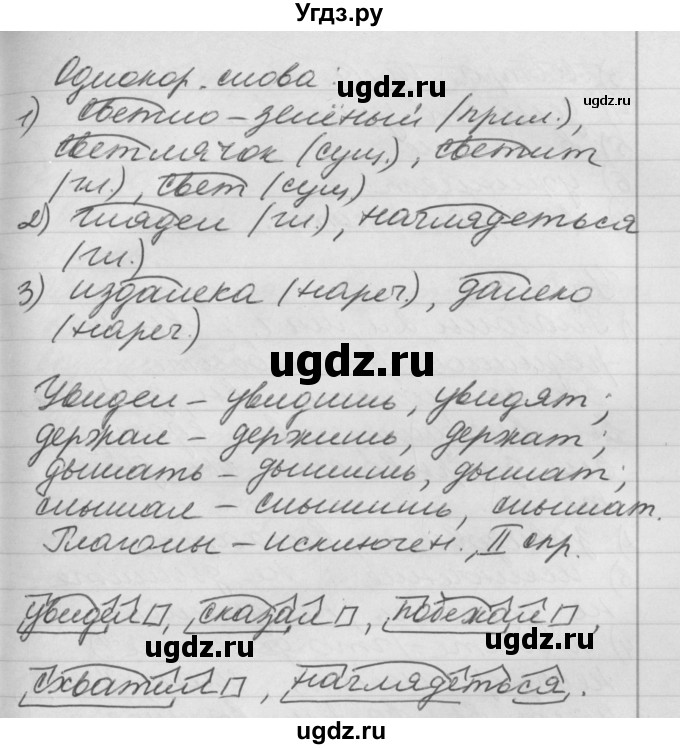 Угдз.ру
Однокор. слова:
ugdz.ru
ugdz.ru
1) светло-зелёный (прил.),
светлячок (сущ.), светит
(гл.), свет (сущ)
ugdz.ru
2) глядел (гл.), наглядеться
(гл.)
ugdz.ru
3) издалека (нареч.), далеко
(нареч.)
ugdz.ru
Увидел – увидишь, увидят;
держал – держишь, держат;
ugdz.ru
дышать – дышишь, дышат;
слышал – слышишь, слышат.
Глаголы – исключен., II спр.
ugdz.ru
ugdz.ru
увидел, сказал, побежал,
ugdz.ru
схватил, наглядеться.
ugdz.ru
ugdz.ru